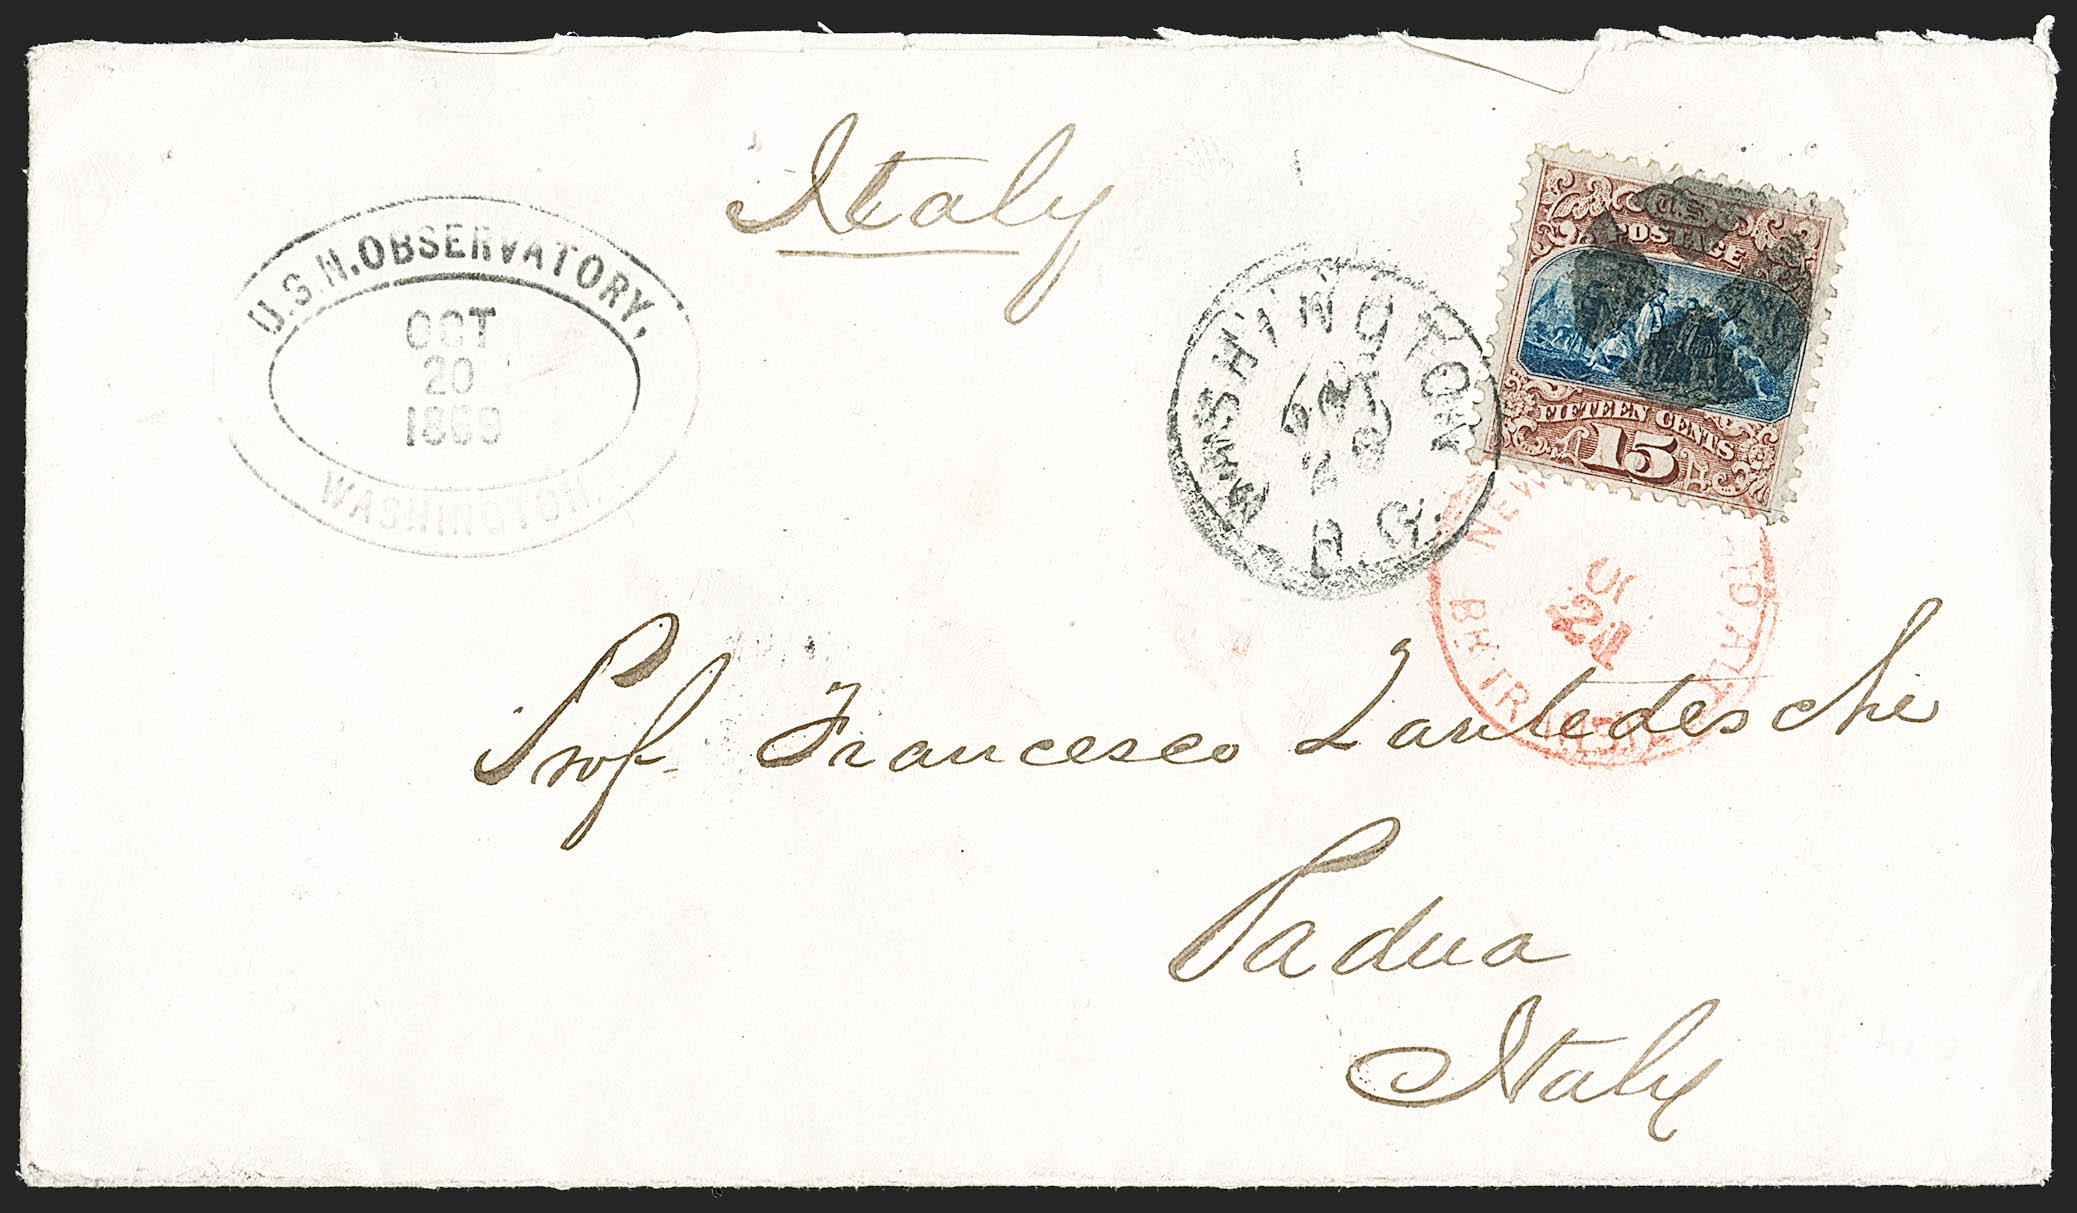 Italy
U.S.N. OBSERVATORY,
OCT
20
1869
WASHINGTON.
WASHINGTON
OCT
20
D.C.
U.S.
POSTAGE
FIFTEEN CENTS
15
NEW
PAID ALL
BR. TRANSIT
21
Prof. Francesco Zantedeschi
Padua
Italy